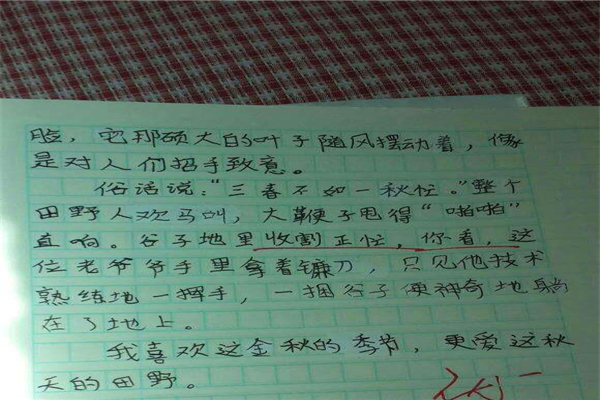 脸，它那硕大的叶子随风摆动着，像
是对人们招手致意。
俗话说："三春不如一秋忙。"整个
田野人欢马叫，大鞭子甩得"啪啪"
直响。谷子地里收割正忙，你看，这
位老爷爷手里拿着镰刀，只见他技术
熟练地一挥手，一捆谷子便神奇地躺
在了地上。
我喜欢这金秋的季节，更爱这秋
天的田野。